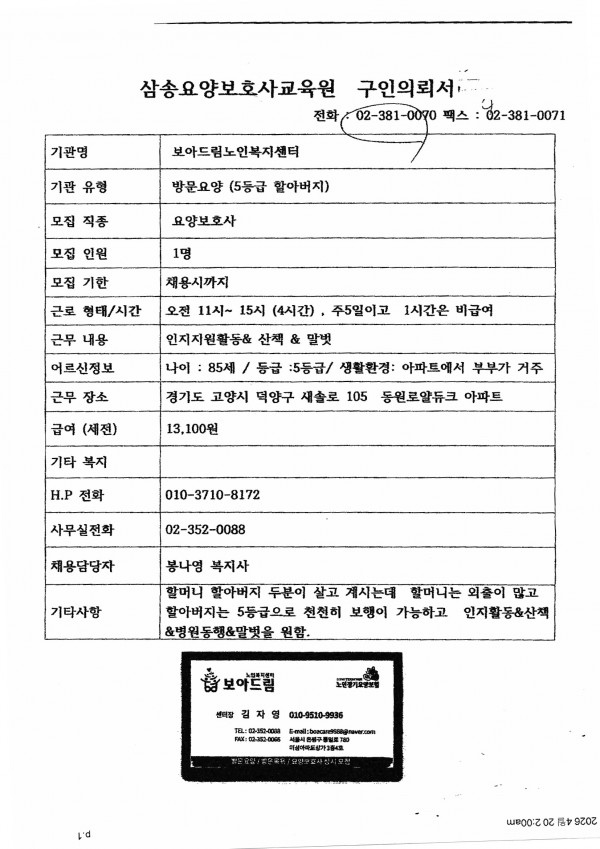 삼송요양보호사교육원 구인의뢰서
전화 : 02-381-0070 팩스 : 02-381-0071
기관명 보아드림노인복지센터
기관 유형 방문요양 (5등급 할아버지)
모집 직종 요양보호사
모집 인원 1명
모집 기한 채용시까지
근로 형태/시간 오전 11시~ 15시 (4시간) , 주5일이고 1시간은 비급여
근무 내용 인지지원활동& 산책 & 말벗
어르신정보 나이 : 85세 / 등급 :5등급/ 생활환경: 아파트에서 부부가 거주
근무 장소 경기도 고양시 덕양구 새솔로 105 동원로얄듀크 아파트
급여 (세전) 13,100원
기타 복지
H.P 전화 010-3710-8172
사무실전화 02-352-0088
채용담당자 봉나영 복지사
기타사항 할머니 할아버지 두분이 살고 계시는데 할머니는 외출이 많고
할아버지는 5등급으로 천천히 보행이 가능하고 인지활동&산책
&병원동행&말벗을 원함.
노인복지센터
보아드림
노인장기요양보험
센터장 김 자 영 010-9510-9936
TEL : 02-352-0088 E-mail : boacare9588@naver.com
FAX : 02-352-0066 서울시 은평구 통일로 780
미성아파트상가 2층4호
방문요양 / 방문목욕 / 요양보호사 상시 모집
2026 4월 20 2:00am
p.1